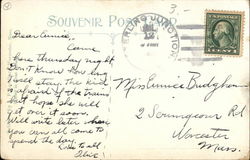 3.-
SOUVENIR POST
JUNCTION
12
Dear Annie,
Came
here Thursday night
Don't know how long
I will stay. The kid
is afraid of the trains
but hope she will
get over it soon.
Will write later when
you can all come to
spend the day.
Love to all.
Alice
Miss Eunice Budghan
2 Scrimgeour Rd
Worcester
Mass.